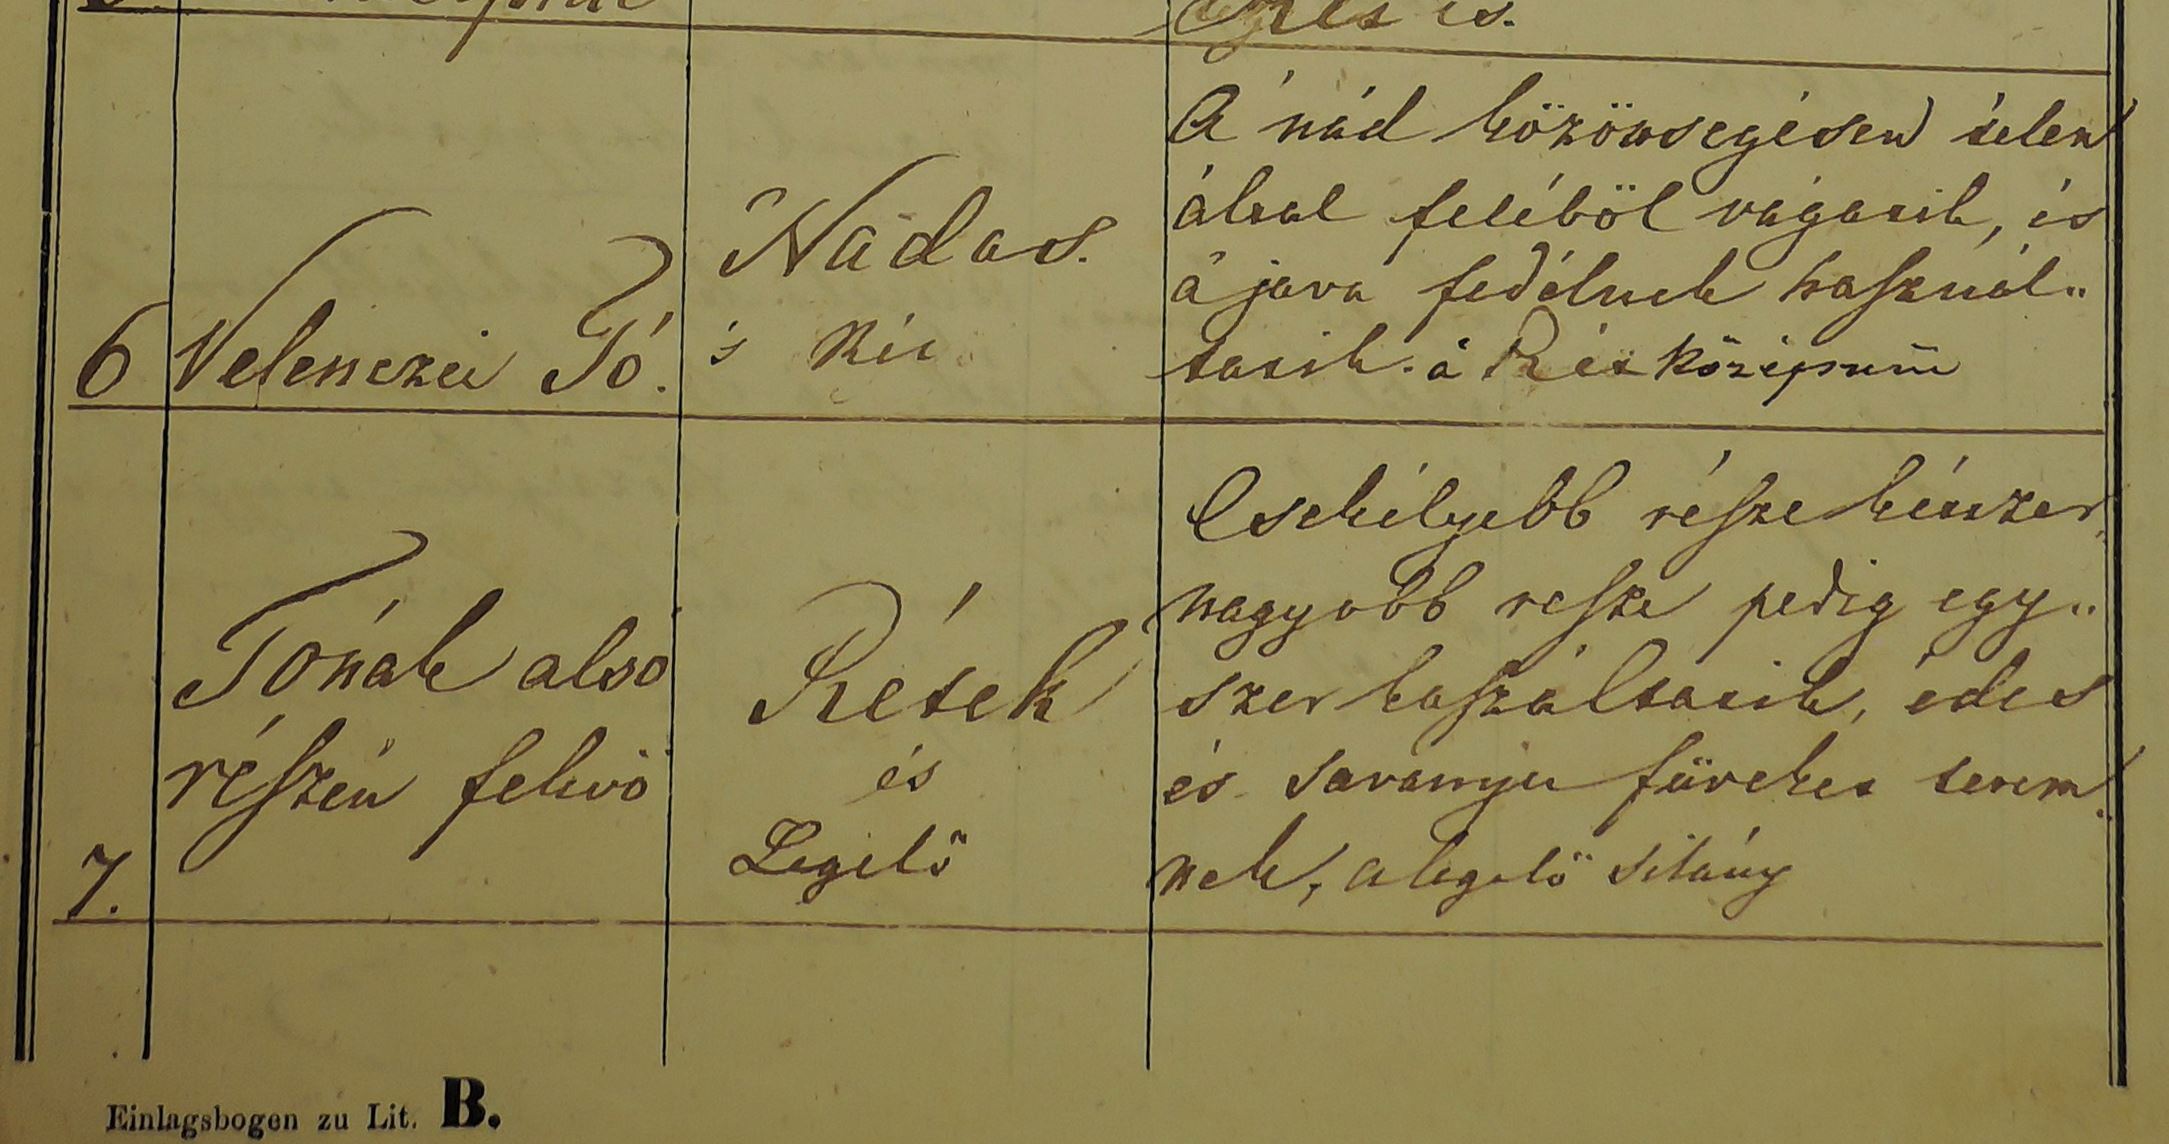 és.
6 Velenczei Tó.
Nádas.
's Rét
A nád közönségesen télen
által feléböl vágatik, és
a java fedélnek használ„
tatik. a Rét középszerü
7.
Tónak alsó
részén fekvö
Rétek
és
Legelö
Csekélyebb része kétszer,
nagyobb része pedig egy„
szer kaszáltatik, édes
és savanyu füveket terem„
nek, a legelö silány
Einlagsbogen zu Lit. B.